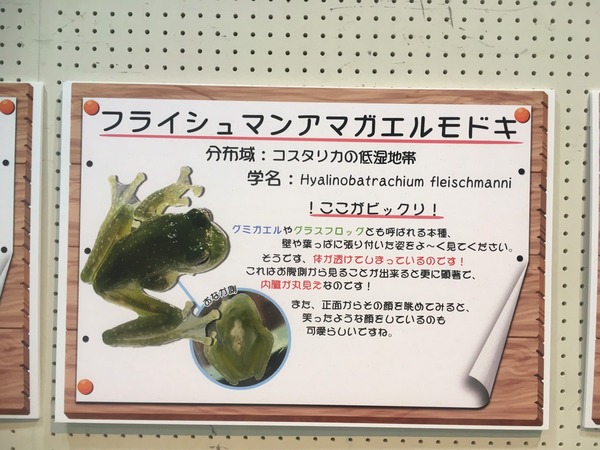 フライシュマンアマガエルモドキ
分布域：コスタリカの低湿地帯
学名：Hyalinobatrachium fleischmanni
！ここがビックリ！
グミガエルやグラスフロッグとも呼ばれる本種、
壁や葉っぱに張り付いた姿をよ～く見てください。
そうです、体が透けてしまっているのです！
これはお腹側から見ることが出来ると更に顕著で、
内臓が丸見えなのです！
また、正面からその顔を眺めてみると、
笑ったような顔をしているのも
可愛らしいですね。
おなか側